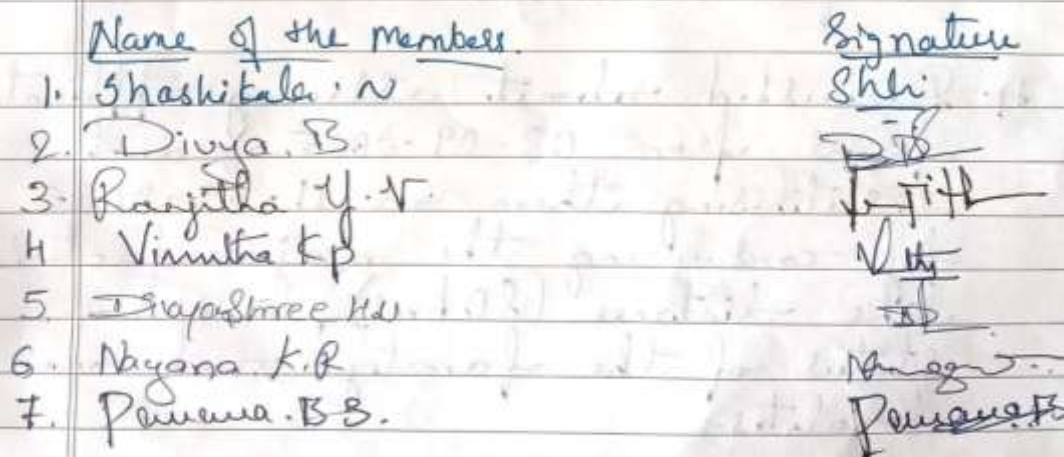 Name of the members. Signature
1. Shashikala. N Shli
2. Divya. B. DB
3. Ranjitha Y.V.
4 Vinutha KP
5. Divyashree HU
6. Nayana. K.R
7. B.B.